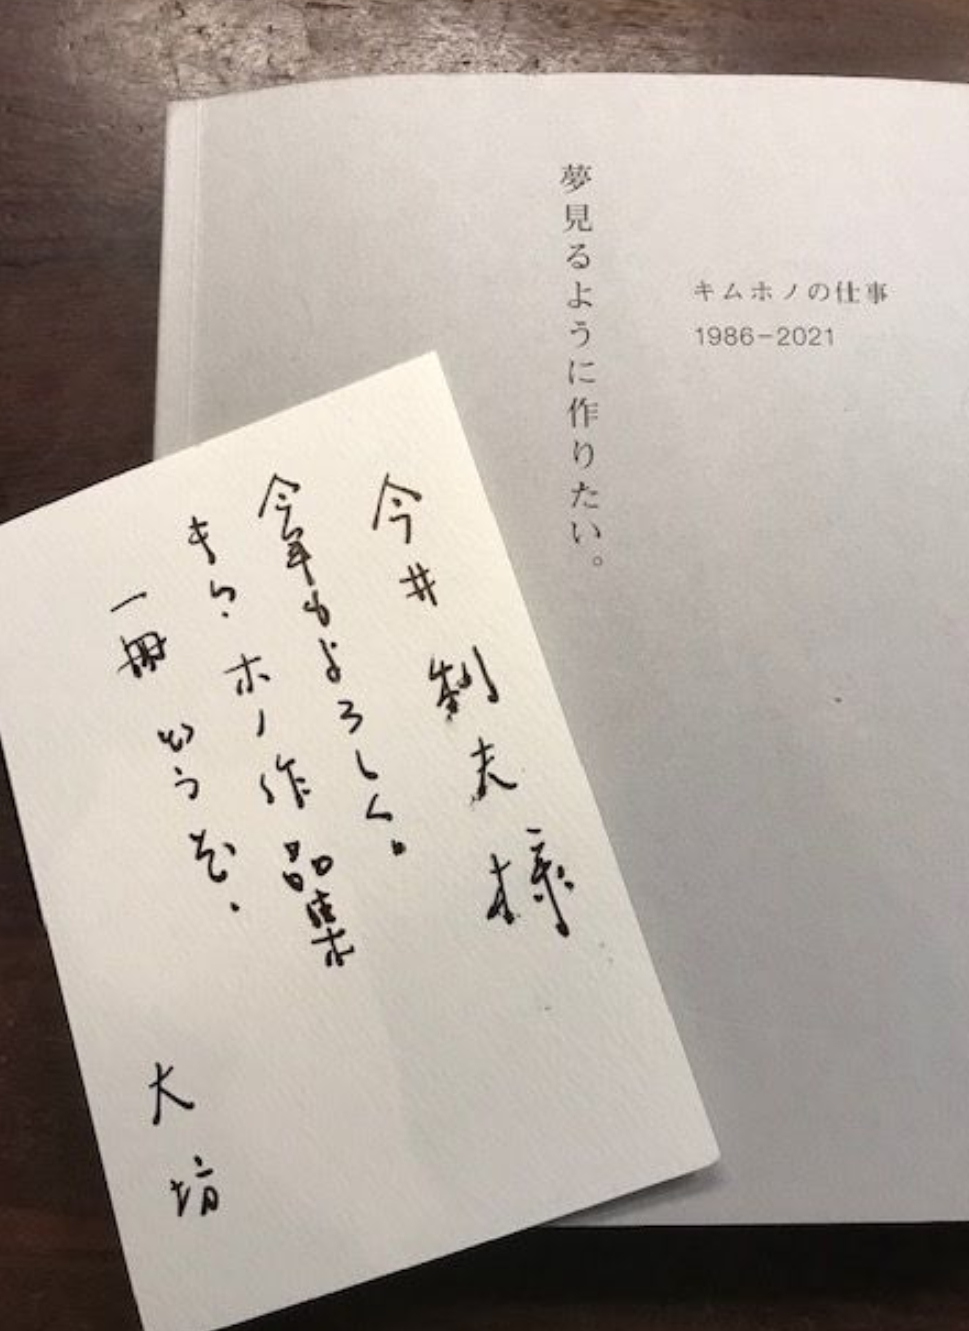 キムホノの仕事
1986-2021
夢見るように作りたい。
今井利夫様
今年もよろしく。
キム・ホノ作品集
一冊どうぞ。
大坊